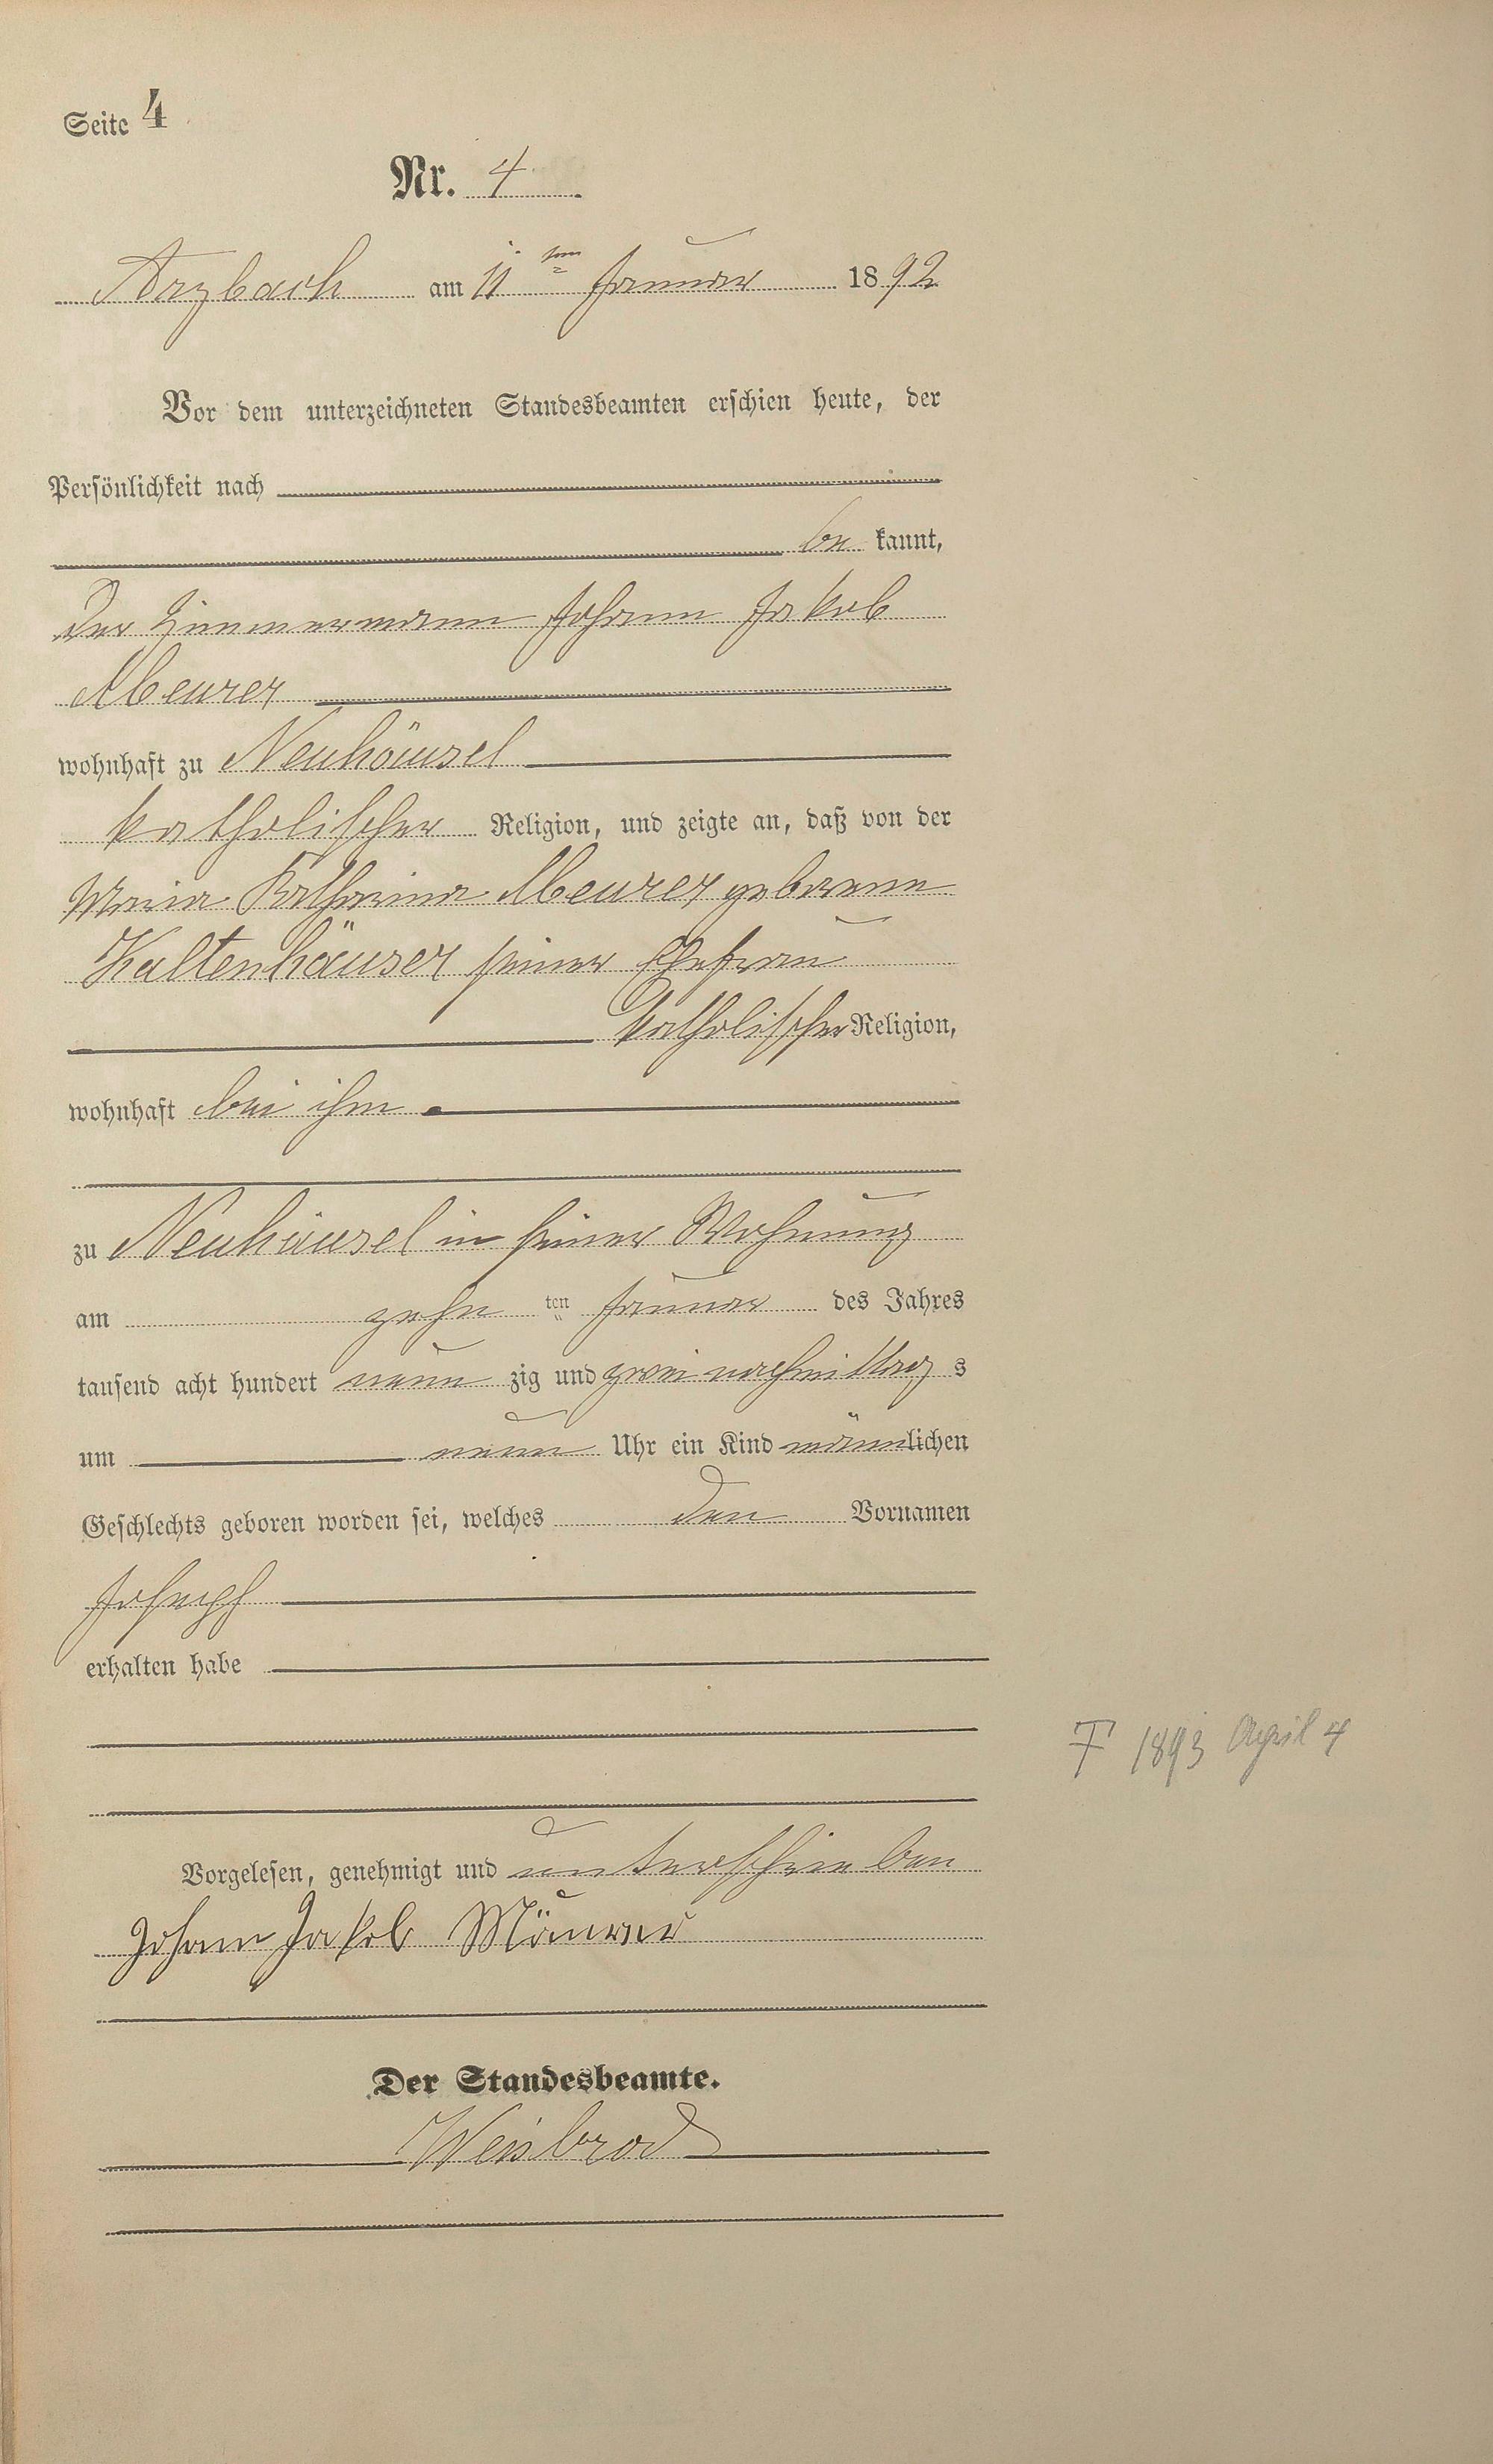 Seite 4
Nr. 4
Arzbach am 11ten Januar 1892
Vor dem unterzeichneten Standesbeamten erschien heute, der
Persönlichkeit nach
be kannt,
der Zimmermann Johann Jakob
Meurer
wohnhaft zu Neuhäusel
katholischer Religion, und zeigte an, daß von der
Maria Katharina Meurer geborene
Kaltenhäuser seiner Ehefrau
katholischer Religion,
wohnhaft bei ihm
zu Neuhäusel in seiner Wohnung
am zehn ten Januar des Jahres
tausend acht hundert neun zig und zwei nachmittag s
um neun Uhr ein Kind männlichen
Geschlechts geboren worden sei, welches den Vornamen
Joseph
erhalten habe
† 1893 April 4
Vorgelesen, genehmigt und unterschrieben
Johann Jakob Mäurer
Der Standesbeamte.
Weisbrod